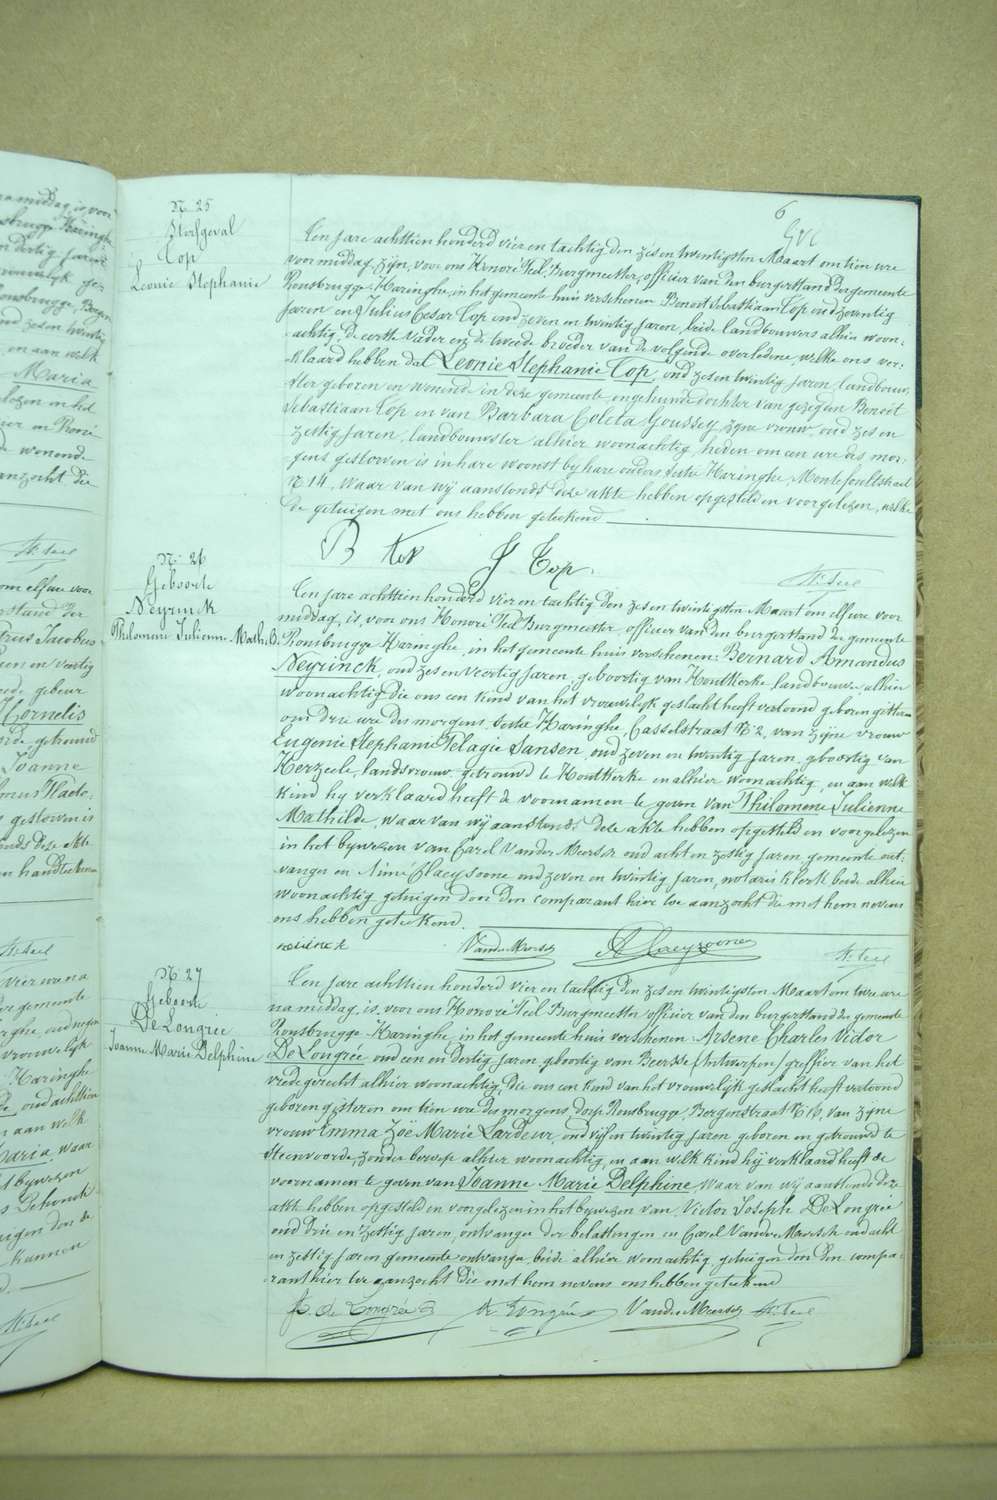 6
GVC
N. 25
Sterfgeval
Cop
Leonie Stephanie
Een jare achttien honderd vier en tachtig den zes en twintigsten Maart om tien ure
voormiddag, zijn, voor ons Honoré Teel, Burgmeester, officier van den burgerstand der gemeente
Rousbrugge-Haringhe, in het gemeente huis verschenen Benoot Sebastiaan Cop oud zeventig
jaren en Julius Cesar Cop oud zeven en twintig jaren, beide landbouwers alhier woon-
achtig, de eerste vader en de tweede broeder van de volgende overledene, welke ons ver-
klaard hebben dat Leonie Stephanie Cop, oud zes en twintig jaren, landbouw-
ster geboren en wonende in deze gemeente ongehuwde dochter van gezegden Benoot
Sebastiaan Cop en van Barbara Coleta Goussey zijne vrouw oud zes en
zestig jaren, landbouwster alhier woonachtig, heden om een ure des mor-
gens gestorven is in hare woonst by hare ouders sectie Haringhe, straat
N. 14, waar van wy aanstonds deze akte hebben opgesteld en voorgelezen, welke
de getuigen met ons hebben geteekend
B Kop J Cop H. Teel
N. 26
Geboorte
Neyrinck
Philomene Julienne Math.
Een jare achttien honderd vier en tachtig den zes en twintigsten Maart om elf ure voor
middag, is, voor ons Honoré Teel Burgmeester, officier van den burgerstand der gemeente
Rousbrugge Haringhe, in het gemeente huis verschenen: Bernard Amandus
Neyrinck, oud zes en veertig jaren, geboortig van Houtkerke landbouwer, alhier
woonachtig die ons een kind van het vrouwelijk geslacht heeft vertoond geboren gisteren
om drie ure des morgens sectie Haringhe, Casselstraat N. 2, van zijne vrouw
Eugenie Stephanie Pelagie Jansen, oud zeven en twintig jaren, geboortig van
Herzeele, landsvrouw, getrouwd te Houtkerke en alhier woonachtig, en aan welk
kind hy verklaard heeft de voornamen te geven van Philomene Julienne
Mathilde, waar van wy aanstonds deze akte hebben opgesteld en voorgelezen
in het bywezen van Carel Vander Meersch oud acht en zestig jaren gemeente ont-
vanger en Aimé Claeysoone oud zeven en twintig jaren, notaris klerk beide alhier
woonachtig getuigen door den comparant hier toe aanzocht die met hem nevens
ons hebben geteekend.
neirinck VanderMeersch A Claeysoone H. Teel
N. 27
Geboorte
De Longrée
Joanne Marie Delphine
Een jare achttien honderd vier en tachtig den zes en twintigsten Maart om twee ure
na middag, is, voor ons Honoré Teel Burgmeester officier van den burgerstand der gemeente
Rousbrugge-Haringhe, in het gemeente huis verschenen Arsene Charles Victor
De Longrée, oud een en dertig jaren, geboortig van Beersse (Antwerpen) greffier van het
vredegerecht alhier woonachtig, die ons een kind van het vrouwelijk geslacht heeft vertoond
geboren gisteren om tien ure des morgens dorp Rousbrugge, Bergenstraat N. , van zijne
vrouw Emma Zoë Marie Lardeur, oud vijf en twintig jaren geboren en getrouwd te
Steenvoorde, zonder beroep alhier woonachtig, en aan welk kind hij verklaard heeft de
voornamen te geven van Joanne Marie Delphine, waar van wij aanstonds deze
akte hebben opgesteld en voorgelezen in het bywezen van Victor Joseph De Longrée
oud drie en zestig jaren, ontvanger der belastingen en Carel Vander Meersch oud acht
en zestig jaren gemeente ontvanger, beide alhier woonachtig getuigen door den compa-
rant hier toe aanzocht die met hem nevens ons hebben geteekend
De Longrée VanderMeersch H. Teel